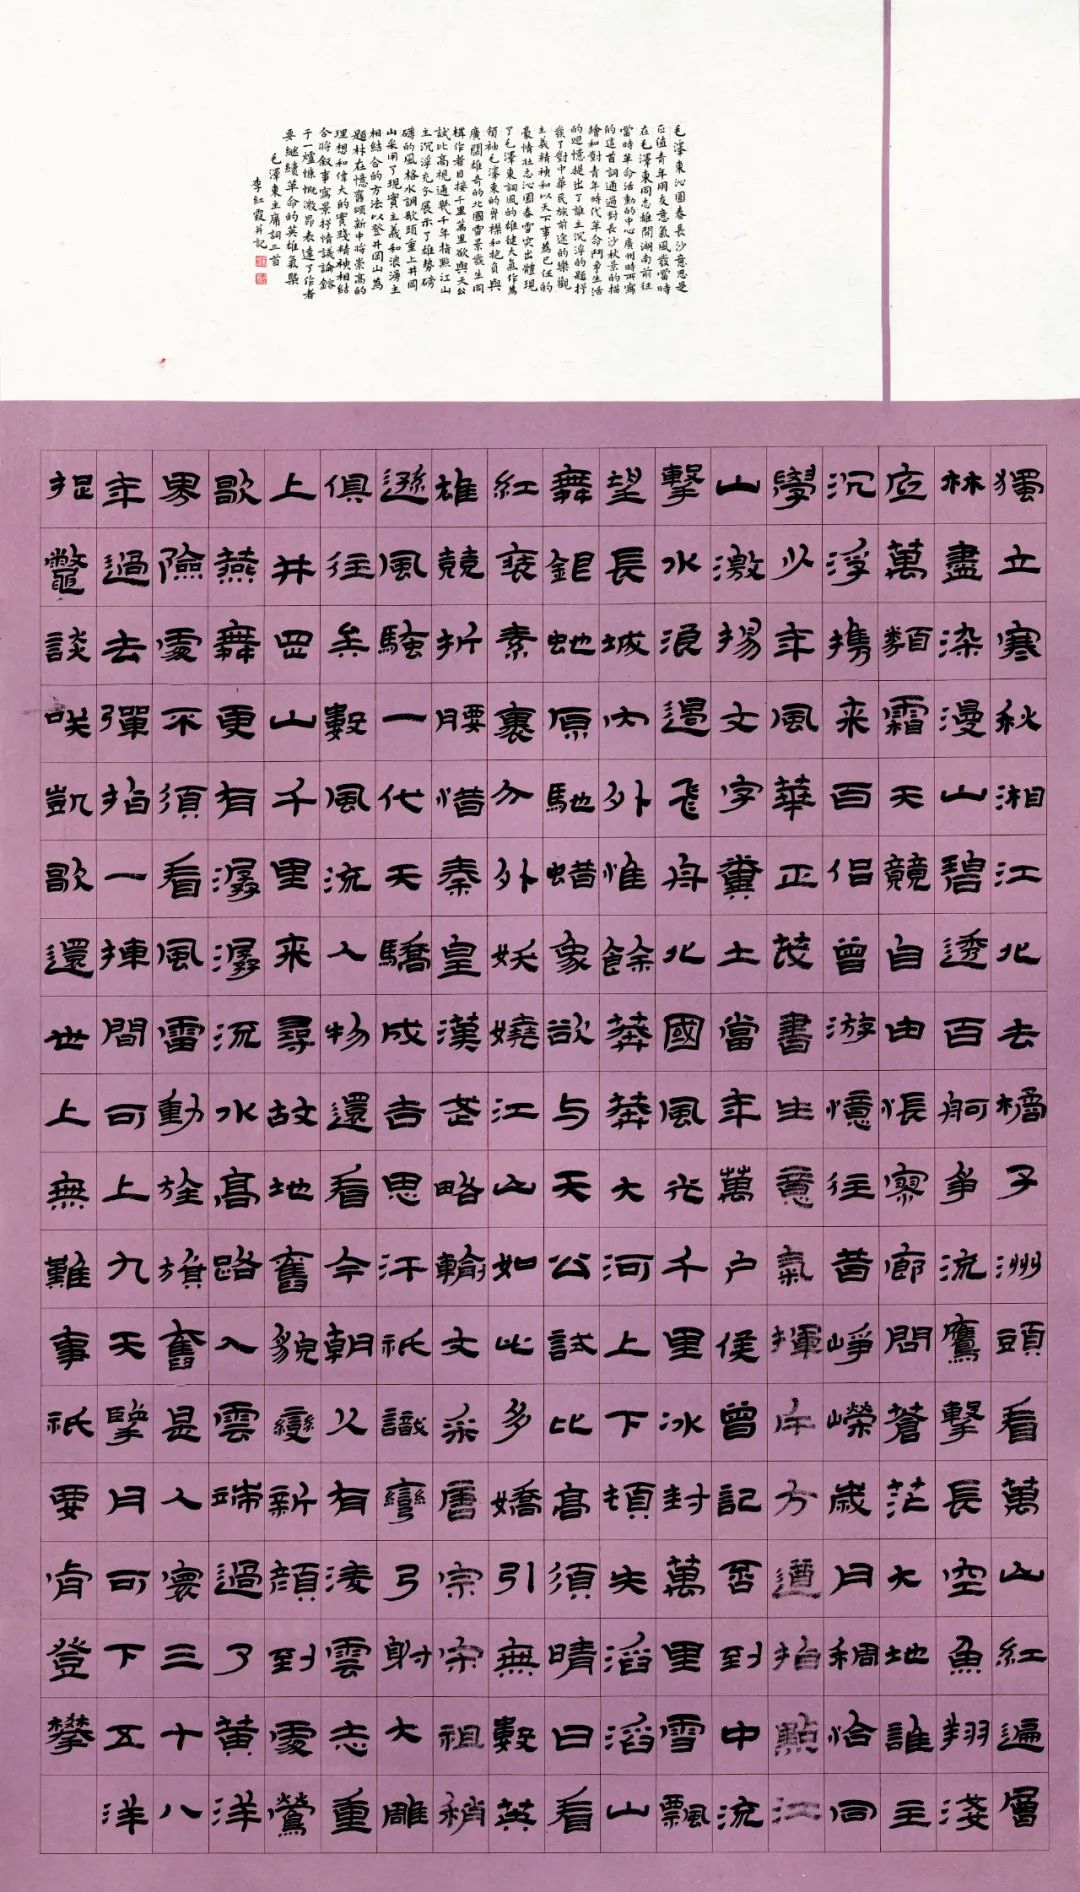 毛澤東沁園春長沙意思是
正值青年朋友意氣風發當時
在毛澤東同志離開湖南前往
當時革命活動的中心廣州時所寫
的這首詞通過對長沙秋景的描
繪和對青年時代革命鬥爭生活
的迴憶提出了誰主沉浮的題抒
發了對中華民族前途的樂觀
主義精神和以天下事為己任的
豪情壯志沁園春雪突出體現
了毛澤東詞風的雄健大氣作為
領袖毛澤東的胷襟和抱負與
廣闊雄奇的北國雪景發生同
構作者目接千里萬里欲與天公
試比高視通幾千年指點江山
主沉浮充分展示了雄勢磅
礴的風格水調歌頭重上井岡
山采用了現實主義和浪漫主
相結合的方法以登井岡山為
題材在憶舊頌新中將崇高的
理想和偉大的實踐精神相結
合將叙事寫景抒情議論鎔
于一爐慷慨激昂表達了作者
要繼續革命的英雄氣槩
毛澤東主席詞三首
李紅霞并記
獨立寒秋湘江北去橘子洲頭看萬山紅遍層
林盡染漫山碧透百舸爭流鷹擊長空魚翔淺
底萬類霜天競自由悵寥廓問蒼茫大地誰主
沉浮攜来百侣曾游憶往昔崢嶸歲月稠恰同
學少年風華正茂書生意氣揮斥方遒指點江
山激揚文字糞土當年萬户侯曾記否到中流
擊水浪遏飛舟北國風光千里冰封萬里雪飄
望長城内外惟餘莽莽大河上下頓失滔滔山
舞銀蛇原馳蠟象欲与天公試比高須晴日看
紅裝素裹分外妖嬈江山如此多嬌引無數英
雄競折腰惜秦皇漢武略輸文采唐宗宋祖稍
遜風騷一代天驕成吉思汗祇識彎弓射大雕
俱往矣數風流人物還看今朝久有凌雲志重
上井岡山千里来尋故地舊貌變新顔到處鶯
歌燕舞更有潺潺流水高路入雲端過了黄洋
界險處不須看風雷動旌旗奮是人寰三十八
年過去彈指一揮間可上九天攬月可下五洋
捉鱉談笑凱歌還世上無難事祇要肯登攀